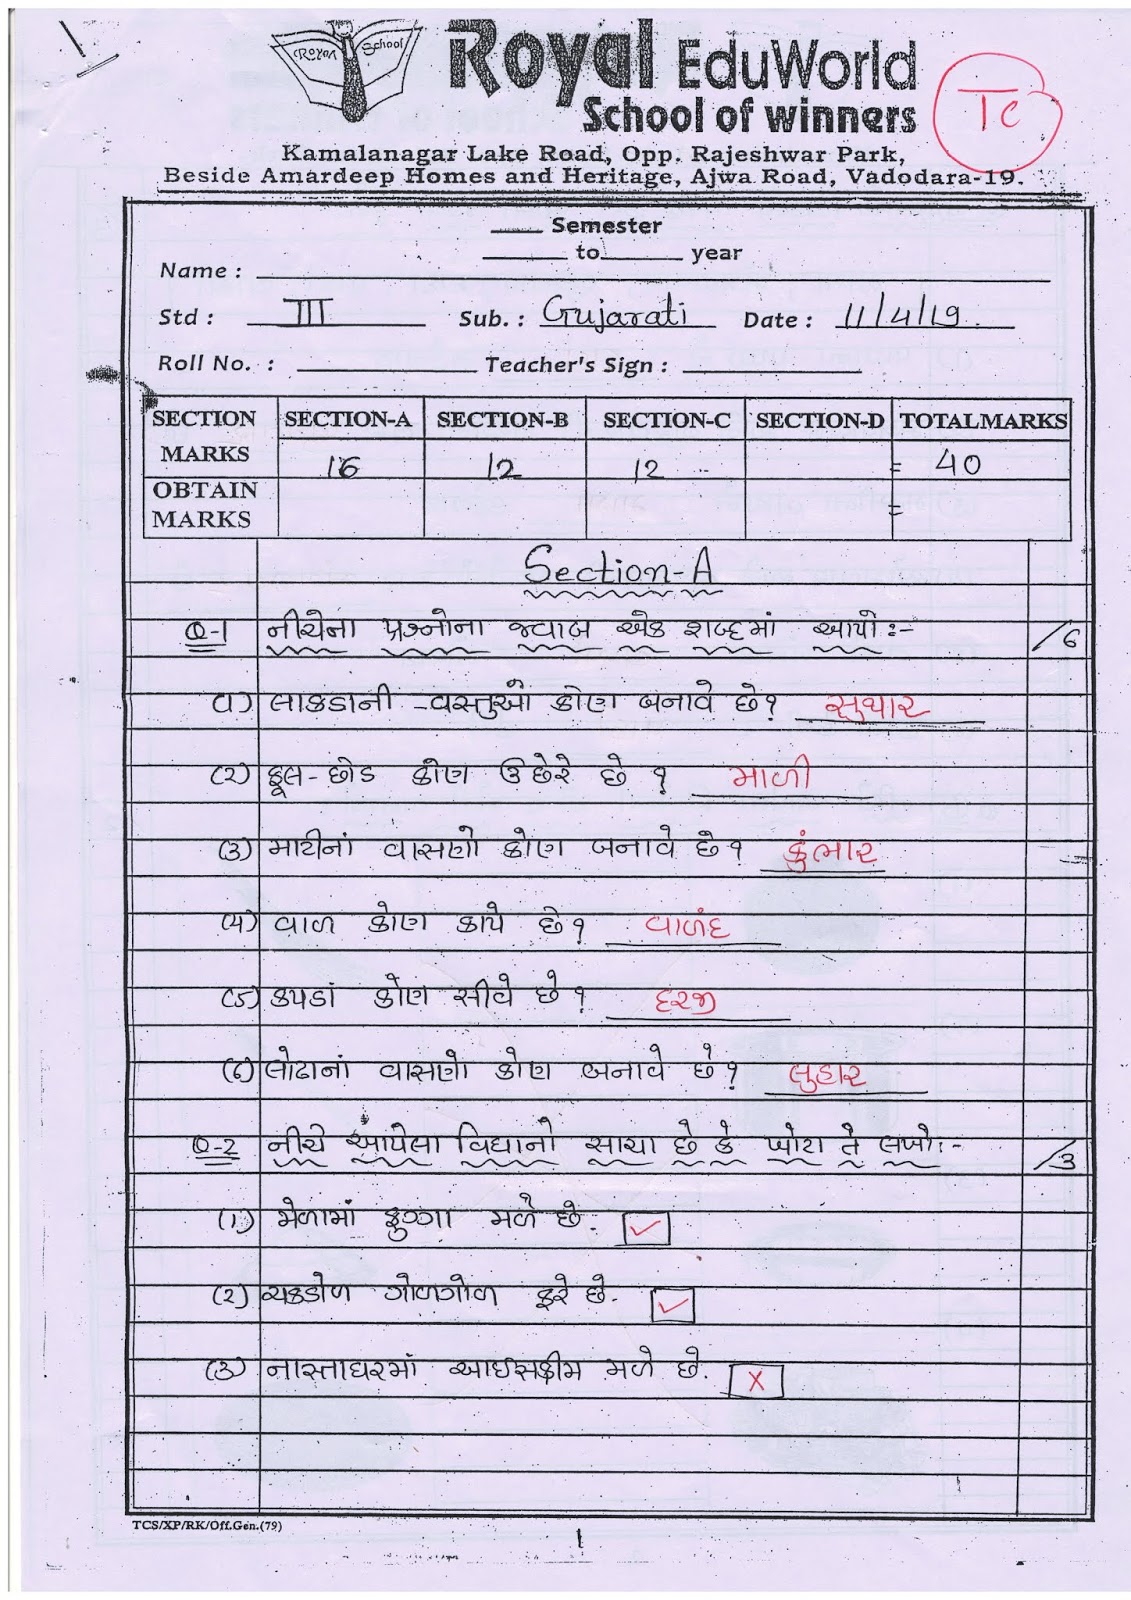 Royal School
Royal EduWorld
School of winners
TC
Kamalanagar Lake Road, Opp. Rajeshwar Park,
Beside Amardeep Homes and Heritage, Ajwa Road, Vadodara-19.
____ Semester
______ to ______ year
Name :
Std : III Sub. : Gujarati Date : 11/4/19
Roll No. : Teacher's Sign :
SECTION MARKS SECTION-A SECTION-B SECTION-C SECTION-D TOTAL MARKS
16 12 12 = 40
OBTAIN MARKS =
Section-A
Q-1 નીચેના પ્રશ્નોના જવાબ એક શબ્દમાં આપો:- /6
(૧) લાકડાની વસ્તુઓ કોણ બનાવે છે? સુથાર
(૨) ફૂલ-છોડ કોણ ઉછેરે છે ? માળી
(૩) માટીનાં વાસણો કોણ બનાવે છે? કુંભાર
(૪) વાળ કોણ કાપે છે? વાળંદ
(૫) કપડાં કોણ સીવે છે ? દરજી
(૬) લોઢાનાં વાસણો કોણ બનાવે છે? લુહાર
Q-2 નીચે આપેલા વિધાનો સાચા છે કે ખોટા તે લખો:- /3
(૧) મેળામાં ફુગ્ગા મળે છે. ✓
(૨) ચકડોળ ગોળગોળ ફરે છે. ✓
(૩) નાસ્તાઘરમાં આઈસક્રીમ મળે છે. X
TCS/XP/RK/Off.Gen.(79)
1